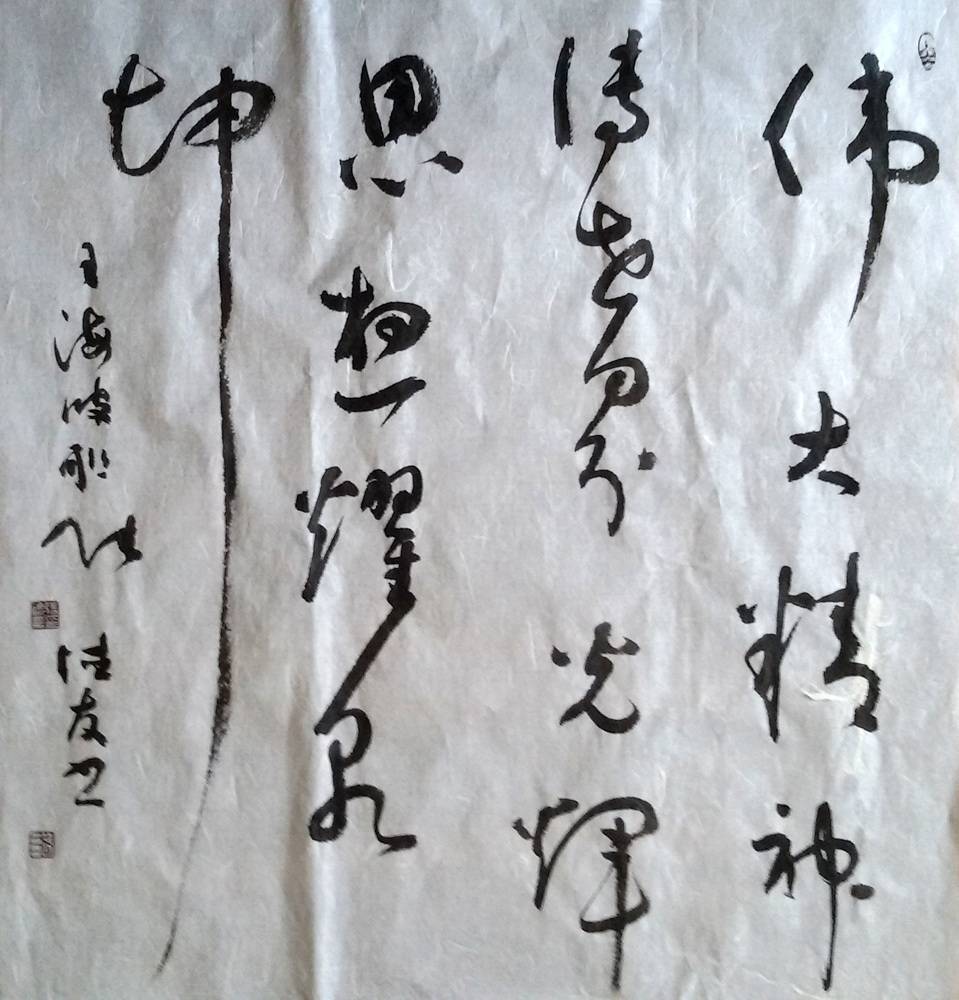 伟大精神
傳世界光辉
思想耀乾
坤
王海波联 佳友书